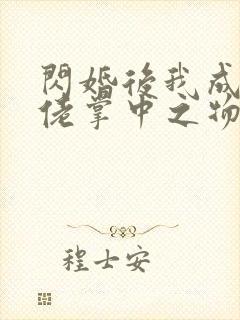 閃婚後我成
佬掌中之物
程士安